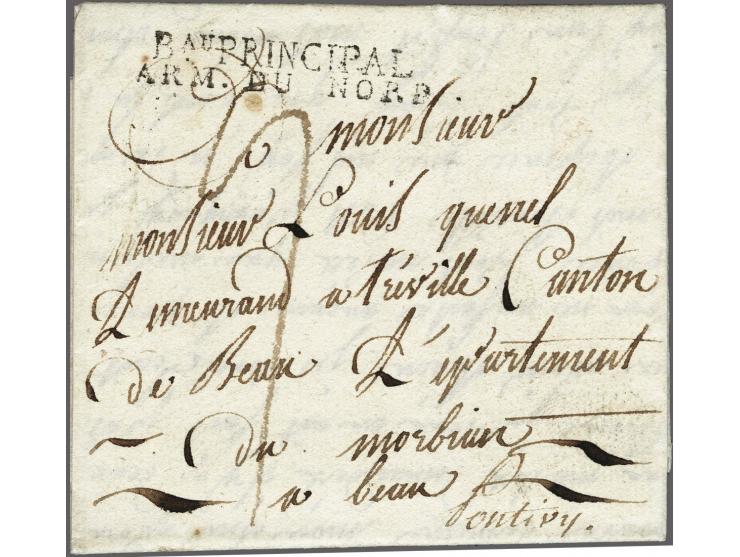 BAU PRINCIPAL
ARM. DU NORD
a monsieur
monsieur Louis querrel
Demeurand a tréville Canton
de Beau Département
du morbian
a beau
pontivy.